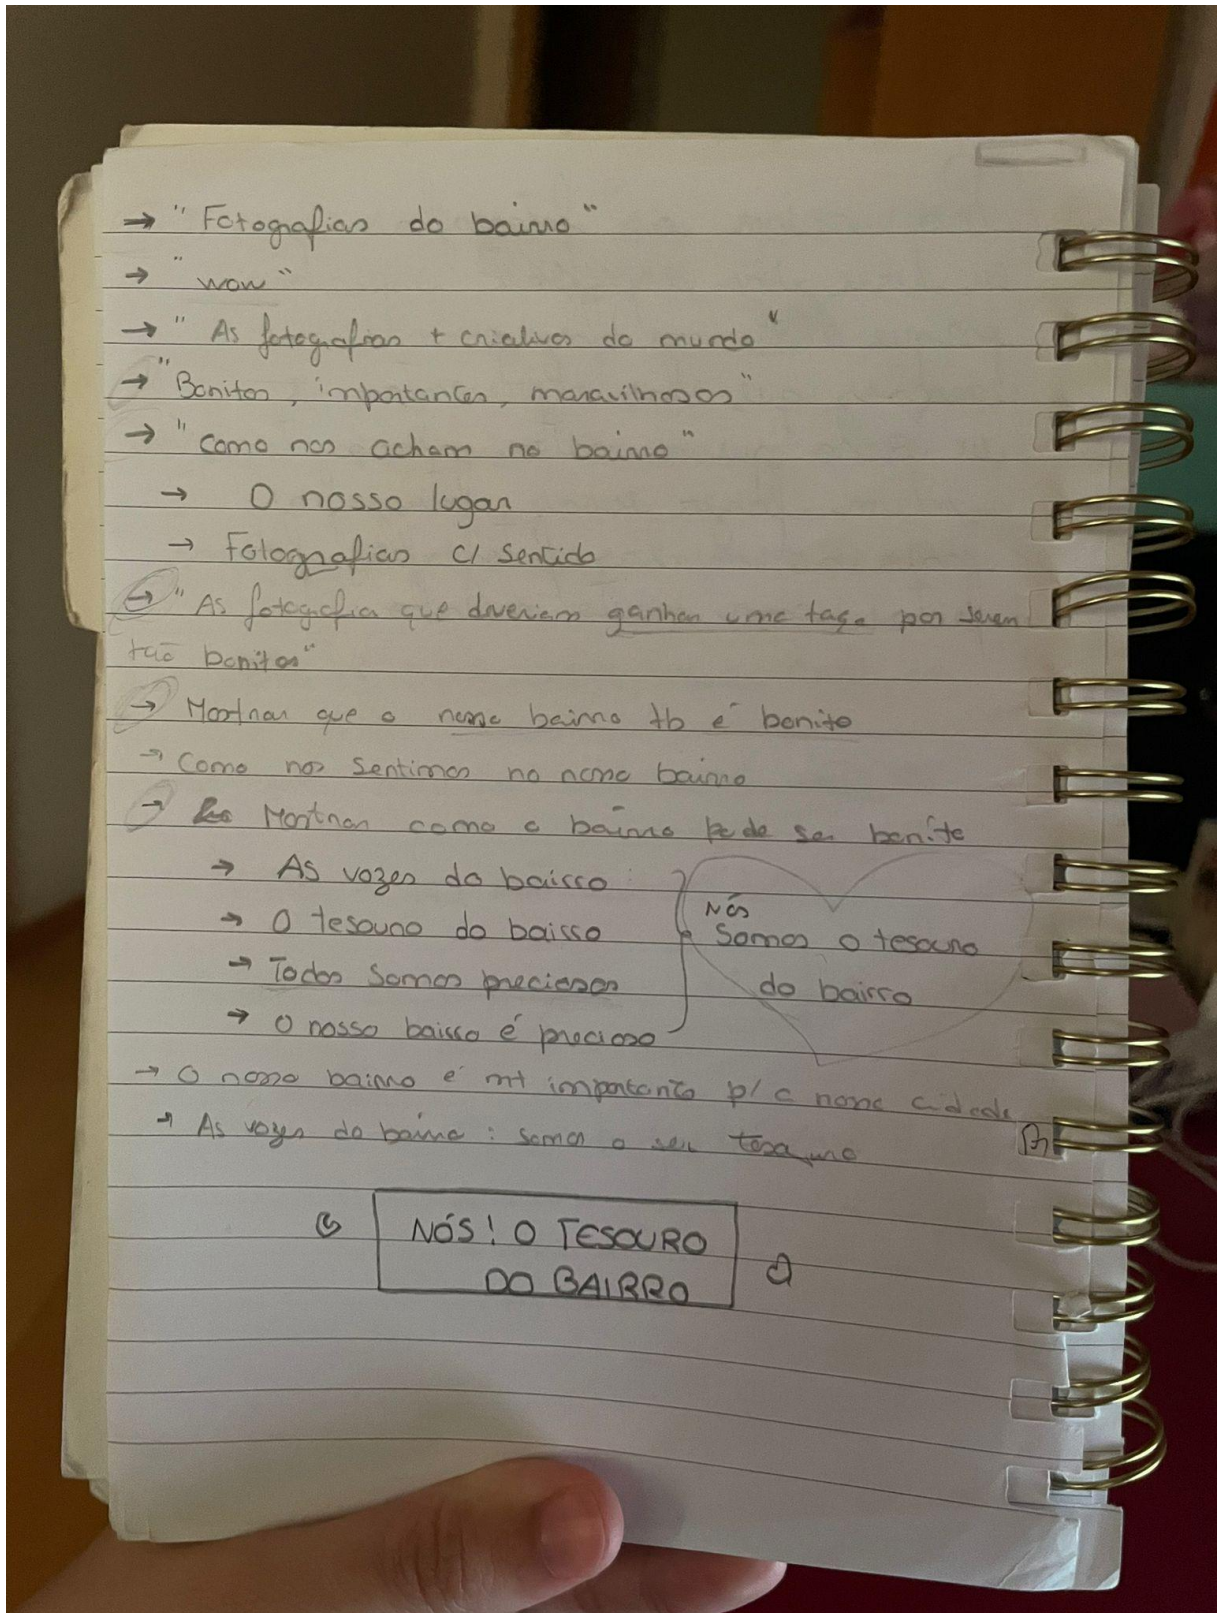 → "Fotografias do bairro"
→ "wow"
→ "As fotografias + criativas do mundo"
→ "Bonitos, importantes, maravilhosos"
→ "Como nos acham no bairro"
→ O nosso lugar
→ Fotografias c/ sentido
→ "As fotografia que deveriam ganhar uma taça por serem
tão bonitas"
→ Mostrar que o nosso bairro tb é bonito
→ Como nos sentimos no nosso bairro
→ Mostrar como o bairro pode ser bonito
→ As vozes do bairro
→ O tesouro do bairro
→ Todos somos preciosos
→ O nosso bairro é precioso
Nós
Somos o tesouro
do bairro
→ O nosso bairro é mt importante p/ a nossa cidade
→ As vozes do bairro: somos o seu tesouro
NÓS! O TESOURO
DO BAIRRO